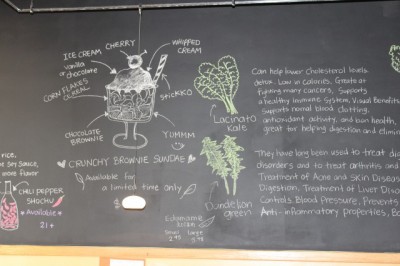 ICE CREAM
vanilla
or chocolate
CHERRY
WHIPPED
CREAM
CORN FLAKES
CEREAL
CHOCOLATE
BROWNIE
YUMMM
CRUNCHY BROWNIE SUNDAE
Available for
a limited time only
$
rice,
soy sauce,
more flavor
CHILI PEPPER
SHOCHU
Available
21+
Lacinato
Kale
Can help lower Cholesterol levels
detox. Low in Calories, Great at
fighting many Cancers, Supports
a healthy Immune System, Visual Benefits
supports normal blood clotting,
antioxidant activity, and bone health,
great for helping digestion and elimin
Dandelion
green
Edamame
Small large
They have long been used to treat dis
disorders and to treat arthritis and
Treatment of Acne and Skin Diseas
Digestion, Treatment of Liver Disea
Controls Blood Pressure, Prevents
Anti-inflammatory properties, Bo